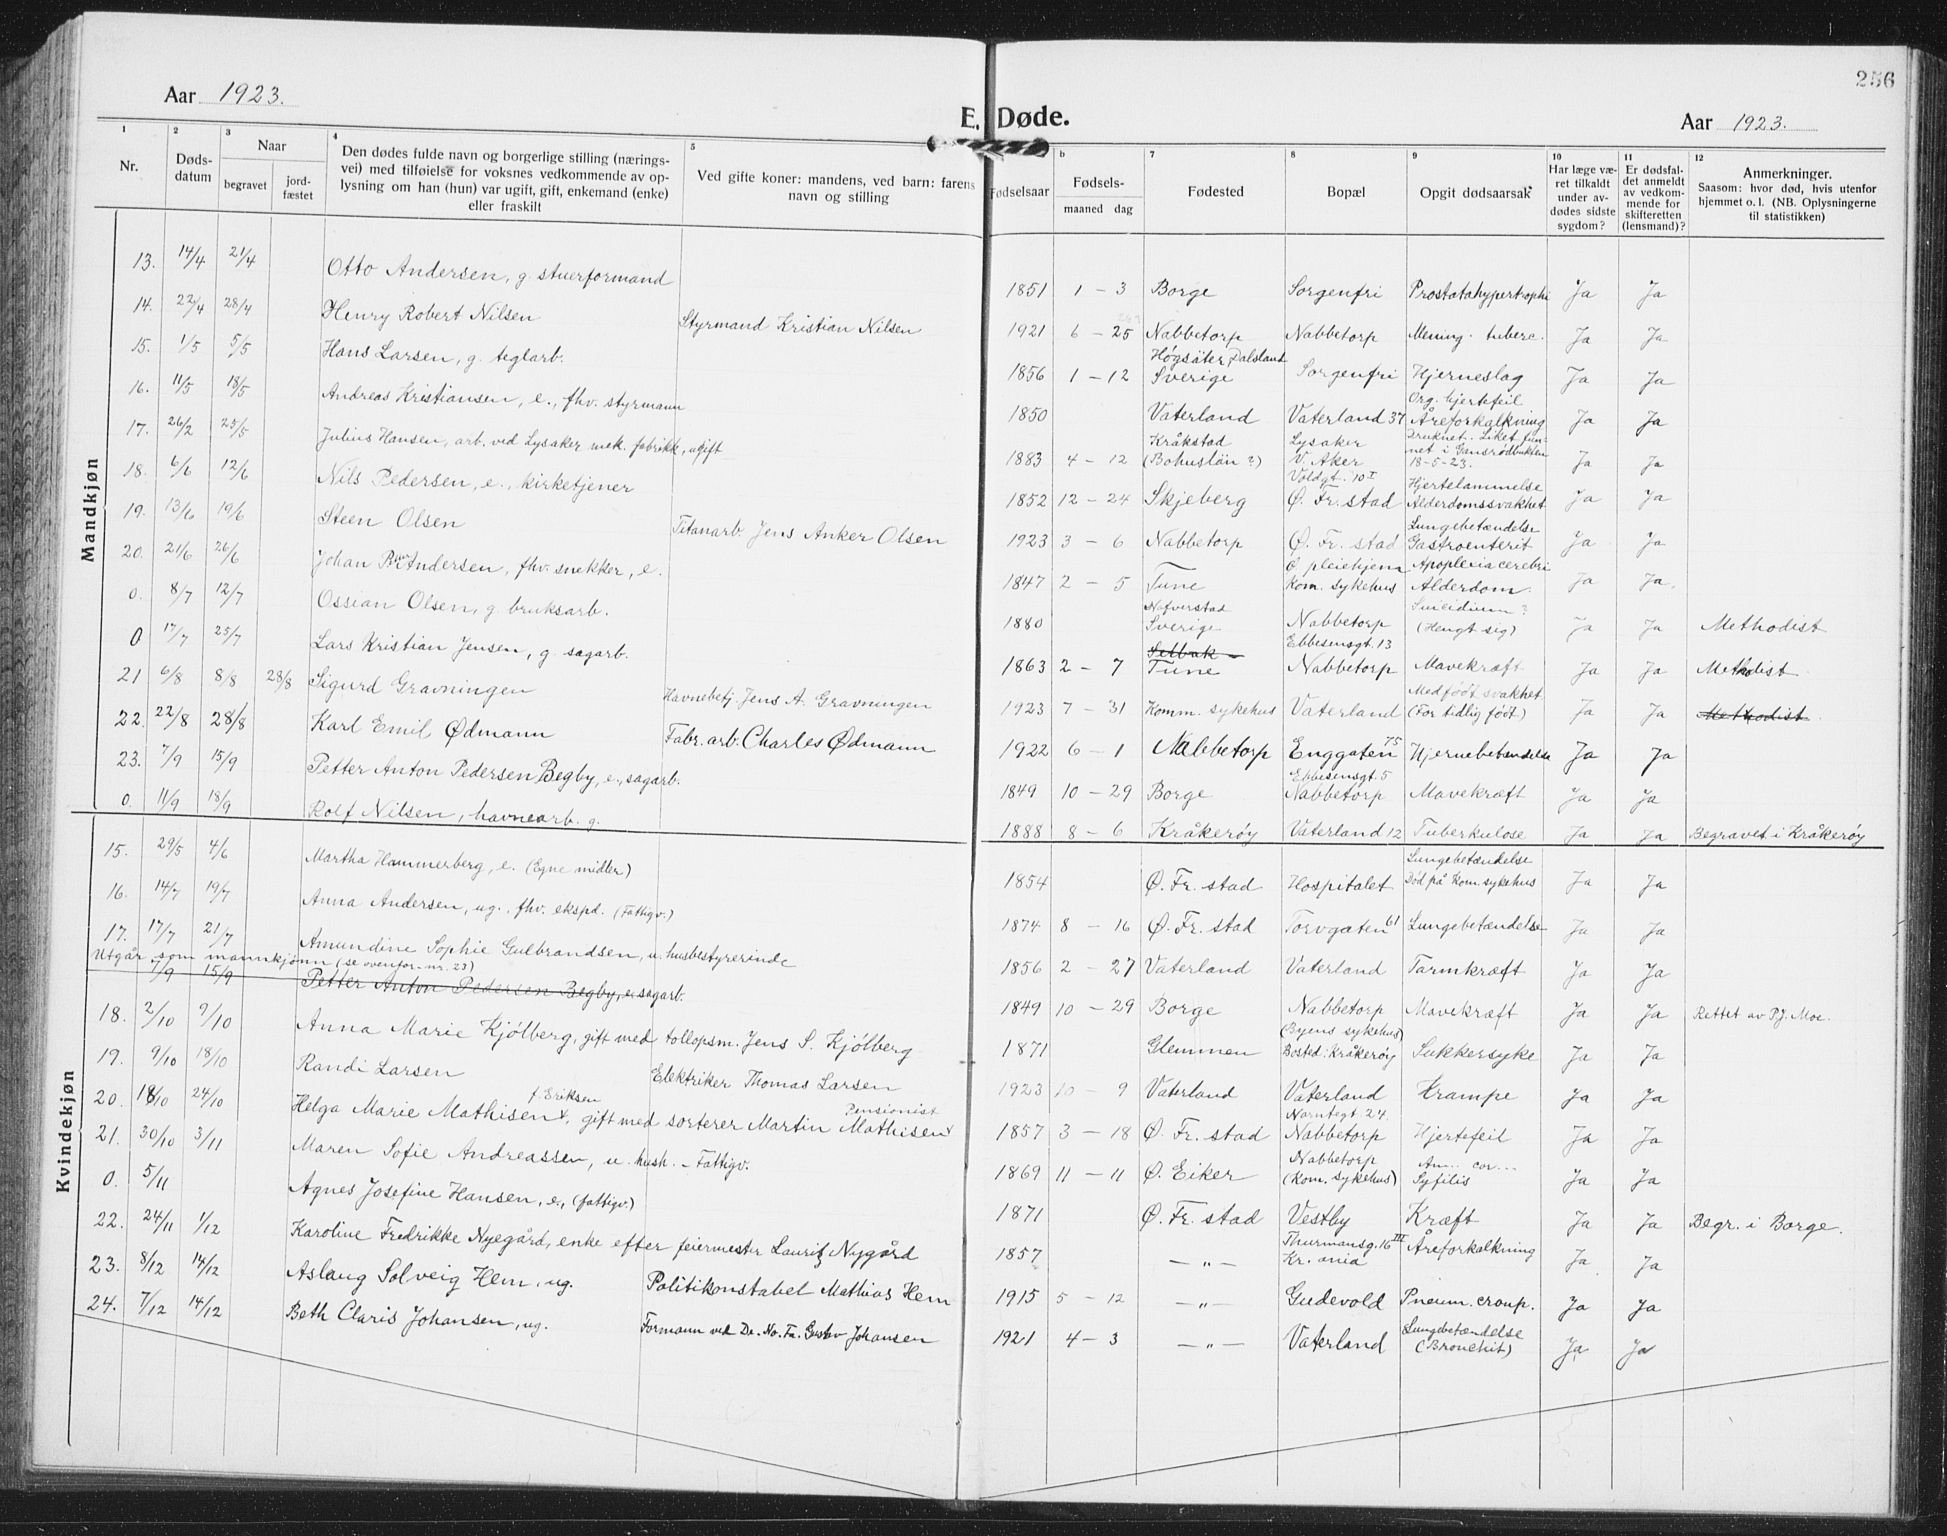 256
Aar 1923.
E. Døde.
Aar 1923.
1 Nr.
2 Døds-datum
3 Naar begravet jord-fæstet
4 Den dødes fulde navn og borgerlige stilling (nærings-vei) med tilføielse for voksnes vedkommende av op-lysning om han (hun) var ugift, gift, enkemand (enke) eller fraskilt
5 Ved gifte koner: mandens, ved barn: farens navn og stilling
Fødselsaar
b Fødsels- maaned dag
7 Fødested
8 Bopæl
9 Opgit dødsaarsak
10 Har læge væ-ret tilkaldt under av-dødes sidste sygdom?
11 Er dødsfal-det anmeldt av vedkom-mende for skifteretten (lensmand)?
12 Anmerkninger. Saasom: hvor død, hvis utenfor hjemmet o. l. (NB. Oplysningerne til statistikken)
Mandkjøn
13. 14/4 21/4 Otto Andersen, g. stuerformand 1851 1 – 3 Borge Sorgenfri Prostatahypertrophi Ja Ja
14. 22/4 28/4 Henry Robert Nilsen Styrmand Kristian Nilsen 1921 6 – 25 Nabbetorp Nabbetorp Mening. tuberc. Ja Ja
15. 1/5 5/5 Hans Larsen, g. teglarb. 1856 1 – 12 Høgsäter, Dalsland Sverige Sorgenfri Hjerneslag Ja Ja
16. 11/5 18/5 Andreas Kristiansen, e., fhv. styrmann 1850 Vaterland Vaterland 37 Org. hjertefeil Åreforkalkning Ja Ja
17. 26/2 25/5 Julius Hansen, arb. ved Lysaker mek. fabrikk, ugift 1883 4 – 12 Kråkstad (Bohuslän?) Lysaker V. Aker Druknet. Liket fun-net i Gansrødbukten 18-5-23. Ja Ja
18. 6/6 12/6 Nils Pedersen, e., kirketjener 1852 12 – 24 Skjeberg Voldgt. 10 I Ø. Fr. stad Hjertelammelse Alderdomssvakhet Ja Ja
19. 13/6 19/6 Steen Olsen Titanarb. Jens Anker Olsen 1923 3 – 6 Nabbetorp Ø. Fr. stad Lungebetændelse Gastroenterit Ja Ja
20. 21/6 26/6 Johan Andersen, fhv. snekker, e. 1847 2 – 5 Tune pleiehjem Kom. sykehus Apoplexia cerebri Alderdom. Ja Ja
0. 8/7 12/7 Ossian Olsen, g. bruksarb. 1880 Nafverstad Sverige Nabbetorp Suicidium? (Hengt sig) Ja Ja Methodist
0 17/7 25/7 Lars Kristian Jensen, g. sagarb. 1863 2 – 7 Selbak Tune Ebbesensgt. 13 Nabbetorp Mavekræft Ja Ja Methodist
21 6/8 8/8 28/8 Sigurd Gravningen Havnebetj. Jens A. Gravningen 1923 7 – 31 Komm. sykehus Vaterland Medfødt svakhet (For tidlig født) Ja Ja Methodist
22. 22/8 28/8 Karl Emil Ødmann Fabr. arb. Charles Ødmann 1922 6 – 1 Nabbetorp Enggaten 75 Hjernebetændelse Ja Ja
23. 7/9 15/9 Petter Anton Pedersen Begby, e., sagarb. 1849 10 – 29 Borge Ebbesensgt. 5 Nabbetorp Mavekræft Ja Ja
0. 11/9 18/9 Rolf Nilsen, havnearb. g. 1888 8 – 6 Kråkerøy Vaterland 12 Tuberkulose Ja Ja Begravet i Kråkerøy
Kvindekjøn
15. 29/5 4/6 Martha Hammerberg, e. (Egne midler) 1854 Ø. Fr. stad Hospitalet Lungebetændelse Død på Kom. sykehus Ja Ja
16. 14/7 19/7 Anna Andersen, ug. fhv. ekspd. (Fattigv.) 1874 8 – 16 Ø. Fr. stad Torvgaten 61 Lungebetændelse Ja Ja
17. 17/7 21/7 Amundine Sophie Gulbrandsen, u. husbestyrerinde 1856 2 – 27 Vaterland Vaterland Tarmkræft Ja Ja
Utgår som mannkjønn (se ovenfor nr. 23)
7/9 15/9 Petter Anton Pedersen Begby, e. sagarb. 1849 10 – 29 Borge Nabbetorp Mavekræft Ja Ja Rettet av P.J. Moe.
18. 2/10 9/10 Anna Marie Kjølberg, gift med tollopsm. Jens S. Kjølberg 1871 Glemmen (Byens sykehus) Bosted: Kråkerøy Sukkersyke Ja Ja
19. 9/10 18/10 Randi Larsen Elektriker Thomas Larsen 1923 10 – 9 Vaterland Vaterland Krampe Ja Ja
20. 18/10 24/10 Helga Marie Mathisen, f. Eriksen gift med sorterer Martin Mathisen Pensionist 1857 3 – 18 Ø. Fr. stad Nabbetorp Hjertefeil Ja Ja
21. 30/10 3/11 Maren Sofie Andreassen, u. hush. – Fattigv. 1869 11 – 11 Ø. Eiker Nabbetorp (Kom. sykehus) Syfilis Ja Ja
0. 5/11 Agnes Josefine Hansen, e., (fattigv.) 1871 Ø. Fr. stad Vestby Kræft Ja Ja Begr. i Borge.
22. 24/11 1/12 Karoline Fredrikke Nyegård, enke efter feiermester Lauritz Nygård 1857 – „ – Thurmansg. 16 III Kr. ania Åreforkalkning Ja Ja
23. 8/12 14/12 Aslaug Solveig Hem, ug. Politikonstabel Mathias Hem 1915 5 – 12 – „ – Gudevold Pneum. croup. Ja Ja
24. 7/12 14/12 Beth Claris Johansen, ug. Formann ved De. No. Fa. Gustav Johansen 1921 4 – 3 – „ – Vaterland Lungebetændelse (Bronchit) Ja Ja